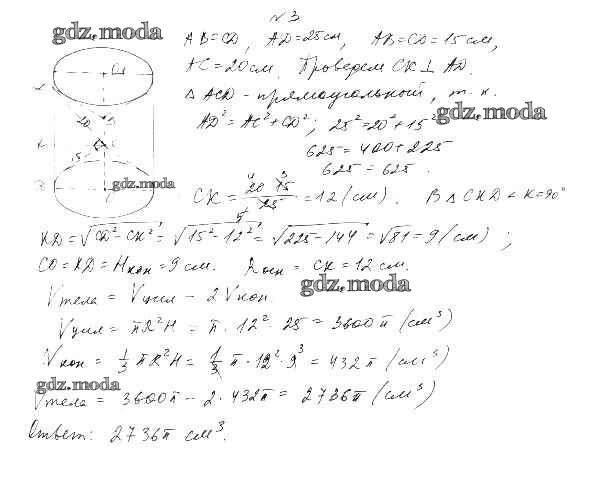 №3
gdz.moda
AB=CD, AD=25см, AB=CD=15см,
AC=20см. Проведем CK⊥AD.
△ACD - прямоугольный, т.к.
AD²=AC²+CD²; 25²=20²+15²
gdz.moda
625=400+225
625=625.
20
15
gdz.moda
CK = 20·15/25 = 12(см). В △CKD ∠K=90°
KD=√CD²-CK² = √15²-12² = √225-144 = √81=9(см);
CO=KD=Hкон=9см. Rосн=CK=12см.
gdz.moda
Vтела = Vцил - 2Vкон
Vцил = πR²H = π·12²·25 = 3600π (см³)
Vкон = 1/3 πR²H = 1/3 π·12²·9³ = 432π (см³)
gdz.moda
Vтела = 3600π - 2·432π = 2736π (см³)
Ответ: 2736π см³.